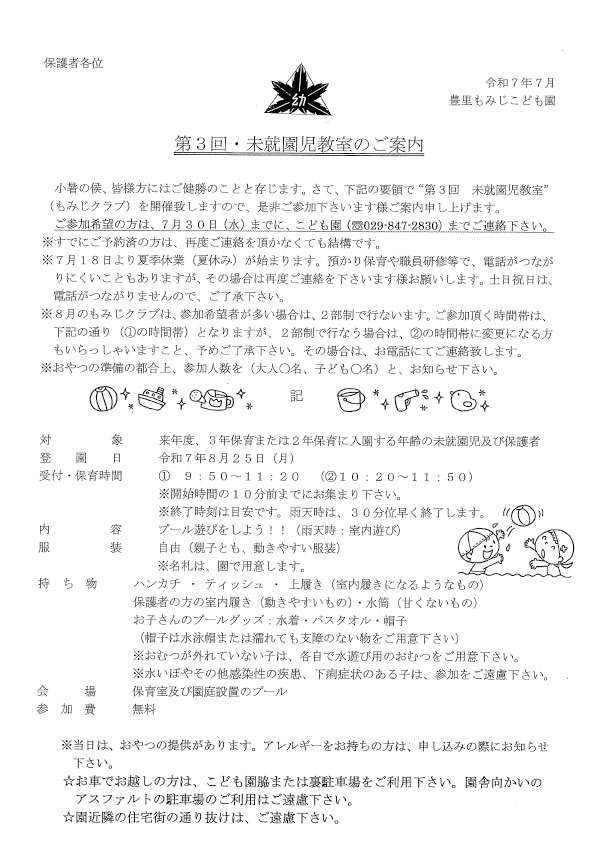 保護者各位
幼
令和7年7月
豊里もみじこども園
第3回・未就園児教室のご案内
小暑の候、皆様方にはご健勝のことと存じます。さて、下記の要領で“第3回 未就園児教室”
（もみじクラブ）を開催致しますので、是非ご参加下さいます様ご案内申し上げます。
ご参加希望の方は、7月30日（水）までに、こども園（☎029-847-2830）までご連絡下さい。
※すでにご予約済の方は、再度ご連絡を頂かなくても結構です。
※7月18日より夏季休業（夏休み）が始まります。預かり保育や職員研修等で、電話がつなが
りにくいこともありますが、その場合は再度ご連絡を下さいます様お願いします。土日祝日は、
電話がつながりませんので、ご了承下さい。
※8月のもみじクラブは、参加希望者が多い場合は、2部制で行ないます。ご参加頂く時間帯は、
下記の通り（①の時間帯）となりますが、2部制で行なう場合は、②の時間帯に変更になる方
もいらっしゃいますこと、予めご了承下さい。その場合は、お電話にてご連絡致します。
※おやつの準備の都合上、参加人数を（大人〇名、子ども〇名）と、お知らせ下さい。
記
対象 来年度、3年保育または2年保育に入園する年齢の未就園児及び保護者
登園日 令和7年8月25日（月）
受付・保育時間 ① 9:50～11:20 （②10:20～11:50）
※開始時間の10分前までにお集まり下さい。
※終了時刻は目安です。雨天時は、30分位早く終了します。
内容 プール遊びをしよう！！（雨天時：室内遊び）
服装 自由（親子とも、動きやすい服装）
※名札は、園で用意します。
持ち物 ハンカチ ・ ティッシュ ・ 上履き（室内履きになるようなもの）
保護者の方の室内履き（動きやすいもの）・水筒（甘くないもの）
お子さんのプールグッズ：水着・バスタオル・帽子
（帽子は水泳帽または濡れても支障のない物をご用意下さい）
※おむつが外れていない子は、各自で水遊び用のおむつをご用意下さい。
※水いぼやその他感染性の疾患、下痢症状のある子は、参加をご遠慮下さい。
会場 保育室及び園庭設置のプール
参加費 無料
※当日は、おやつの提供があります。アレルギーをお持ちの方は、申し込みの際にお知らせ
下さい。
☆お車でお越しの方は、こども園脇または裏駐車場をご利用下さい。園舎向かいの
アスファルトの駐車場のご利用はご遠慮下さい。
☆園近隣の住宅街の通り抜けは、ご遠慮下さい。